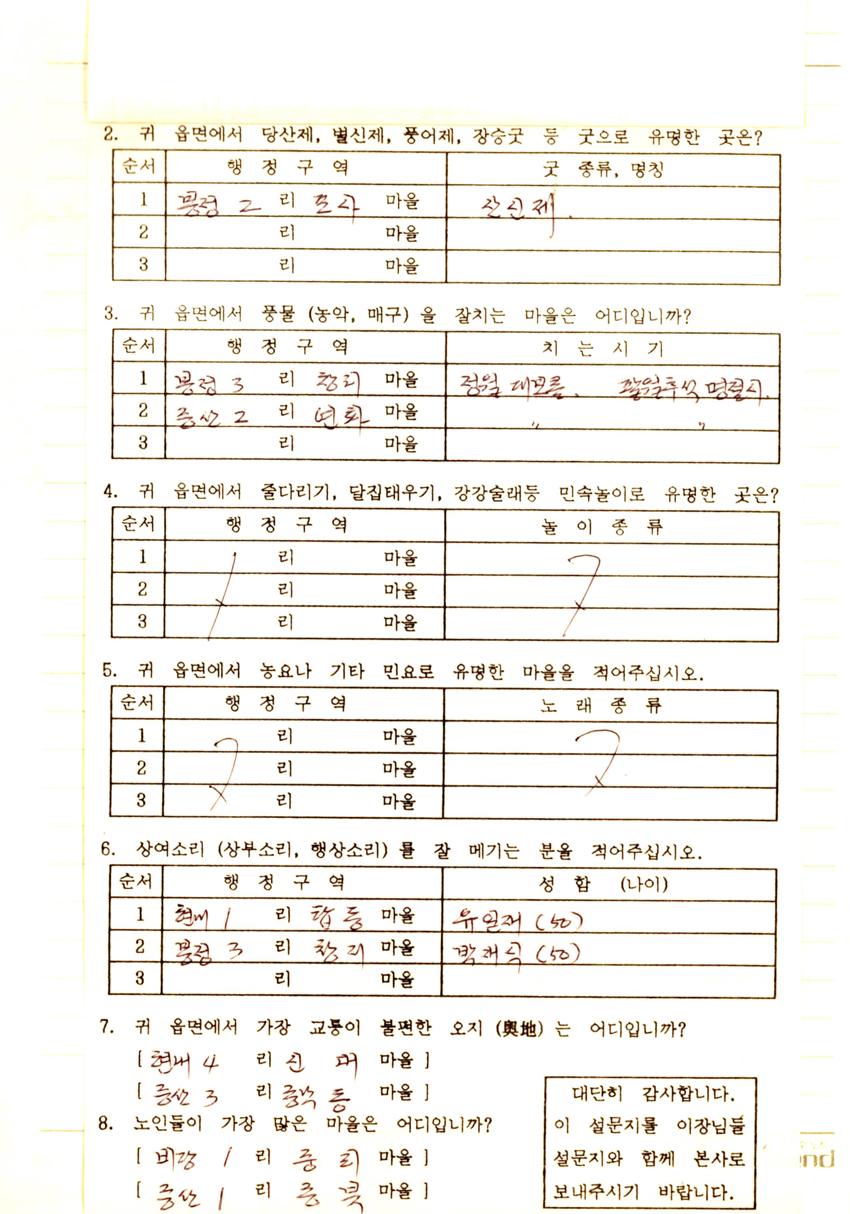 2. 귀 읍면에서 당산제, 별신제, 풍어제, 장승굿 등 굿으로 유명한 곳은?
순서 행 정 구 역 굿 종류, 명칭
1 리 마을 산신제.
2 리 마을
3 리 마을
3. 귀 읍면에서 풍물 (농악, 매구) 을 잘치는 마을은 어디입니까?
순서 행 정 구 역 치 는 시 기
1 3 리 창리 마을 정월 대보름. 팔월추석 명절시.
2 증산 2 리 연화 마을 〃 〃
3 리 마을
4. 귀 읍면에서 줄다리기, 달집태우기, 강강술래등 민속놀이로 유명한 곳은?
순서 행 정 구 역 놀 이 종 류
1 리 마을
2 리 마을
3 리 마을
5. 귀 읍면에서 농요나 기타 민요로 유명한 마을을 적어주십시오.
순서 행 정 구 역 노 래 종 류
1 리 마을
2 리 마을
3 리 마을
6. 상여소리 (상부소리, 행상소리) 를 잘 메기는 분을 적어주십시오.
순서 행 정 구 역 성 함 (나이)
1 현내 1 리 탑동 마을 유일재 (50)
2 3 리 창리 마을 박재식 (50)
3 리 마을
7. 귀 읍면에서 가장 교통이 불편한 오지 (奧地) 는 어디입니까?
[ 현내 4 리 신 대 마을 ]
[ 증산 3 리 마을 ]
8. 노인들이 가장 많은 마을은 어디입니까?
[ 1 리 마을 ]
[ 증산 1 리 마을 ]
대단히 감사합니다.
이 설문지를 이장님들
설문지와 함께 본사로
보내주시기 바랍니다.